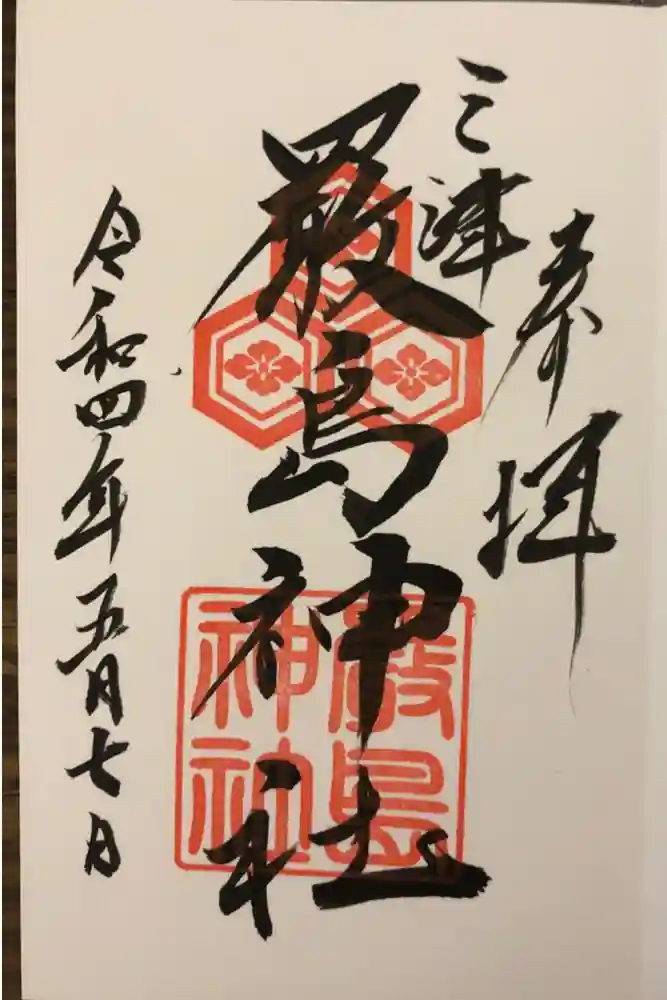 奉拝
三津
厳島神社
厳島
神社
令和四年五月七日